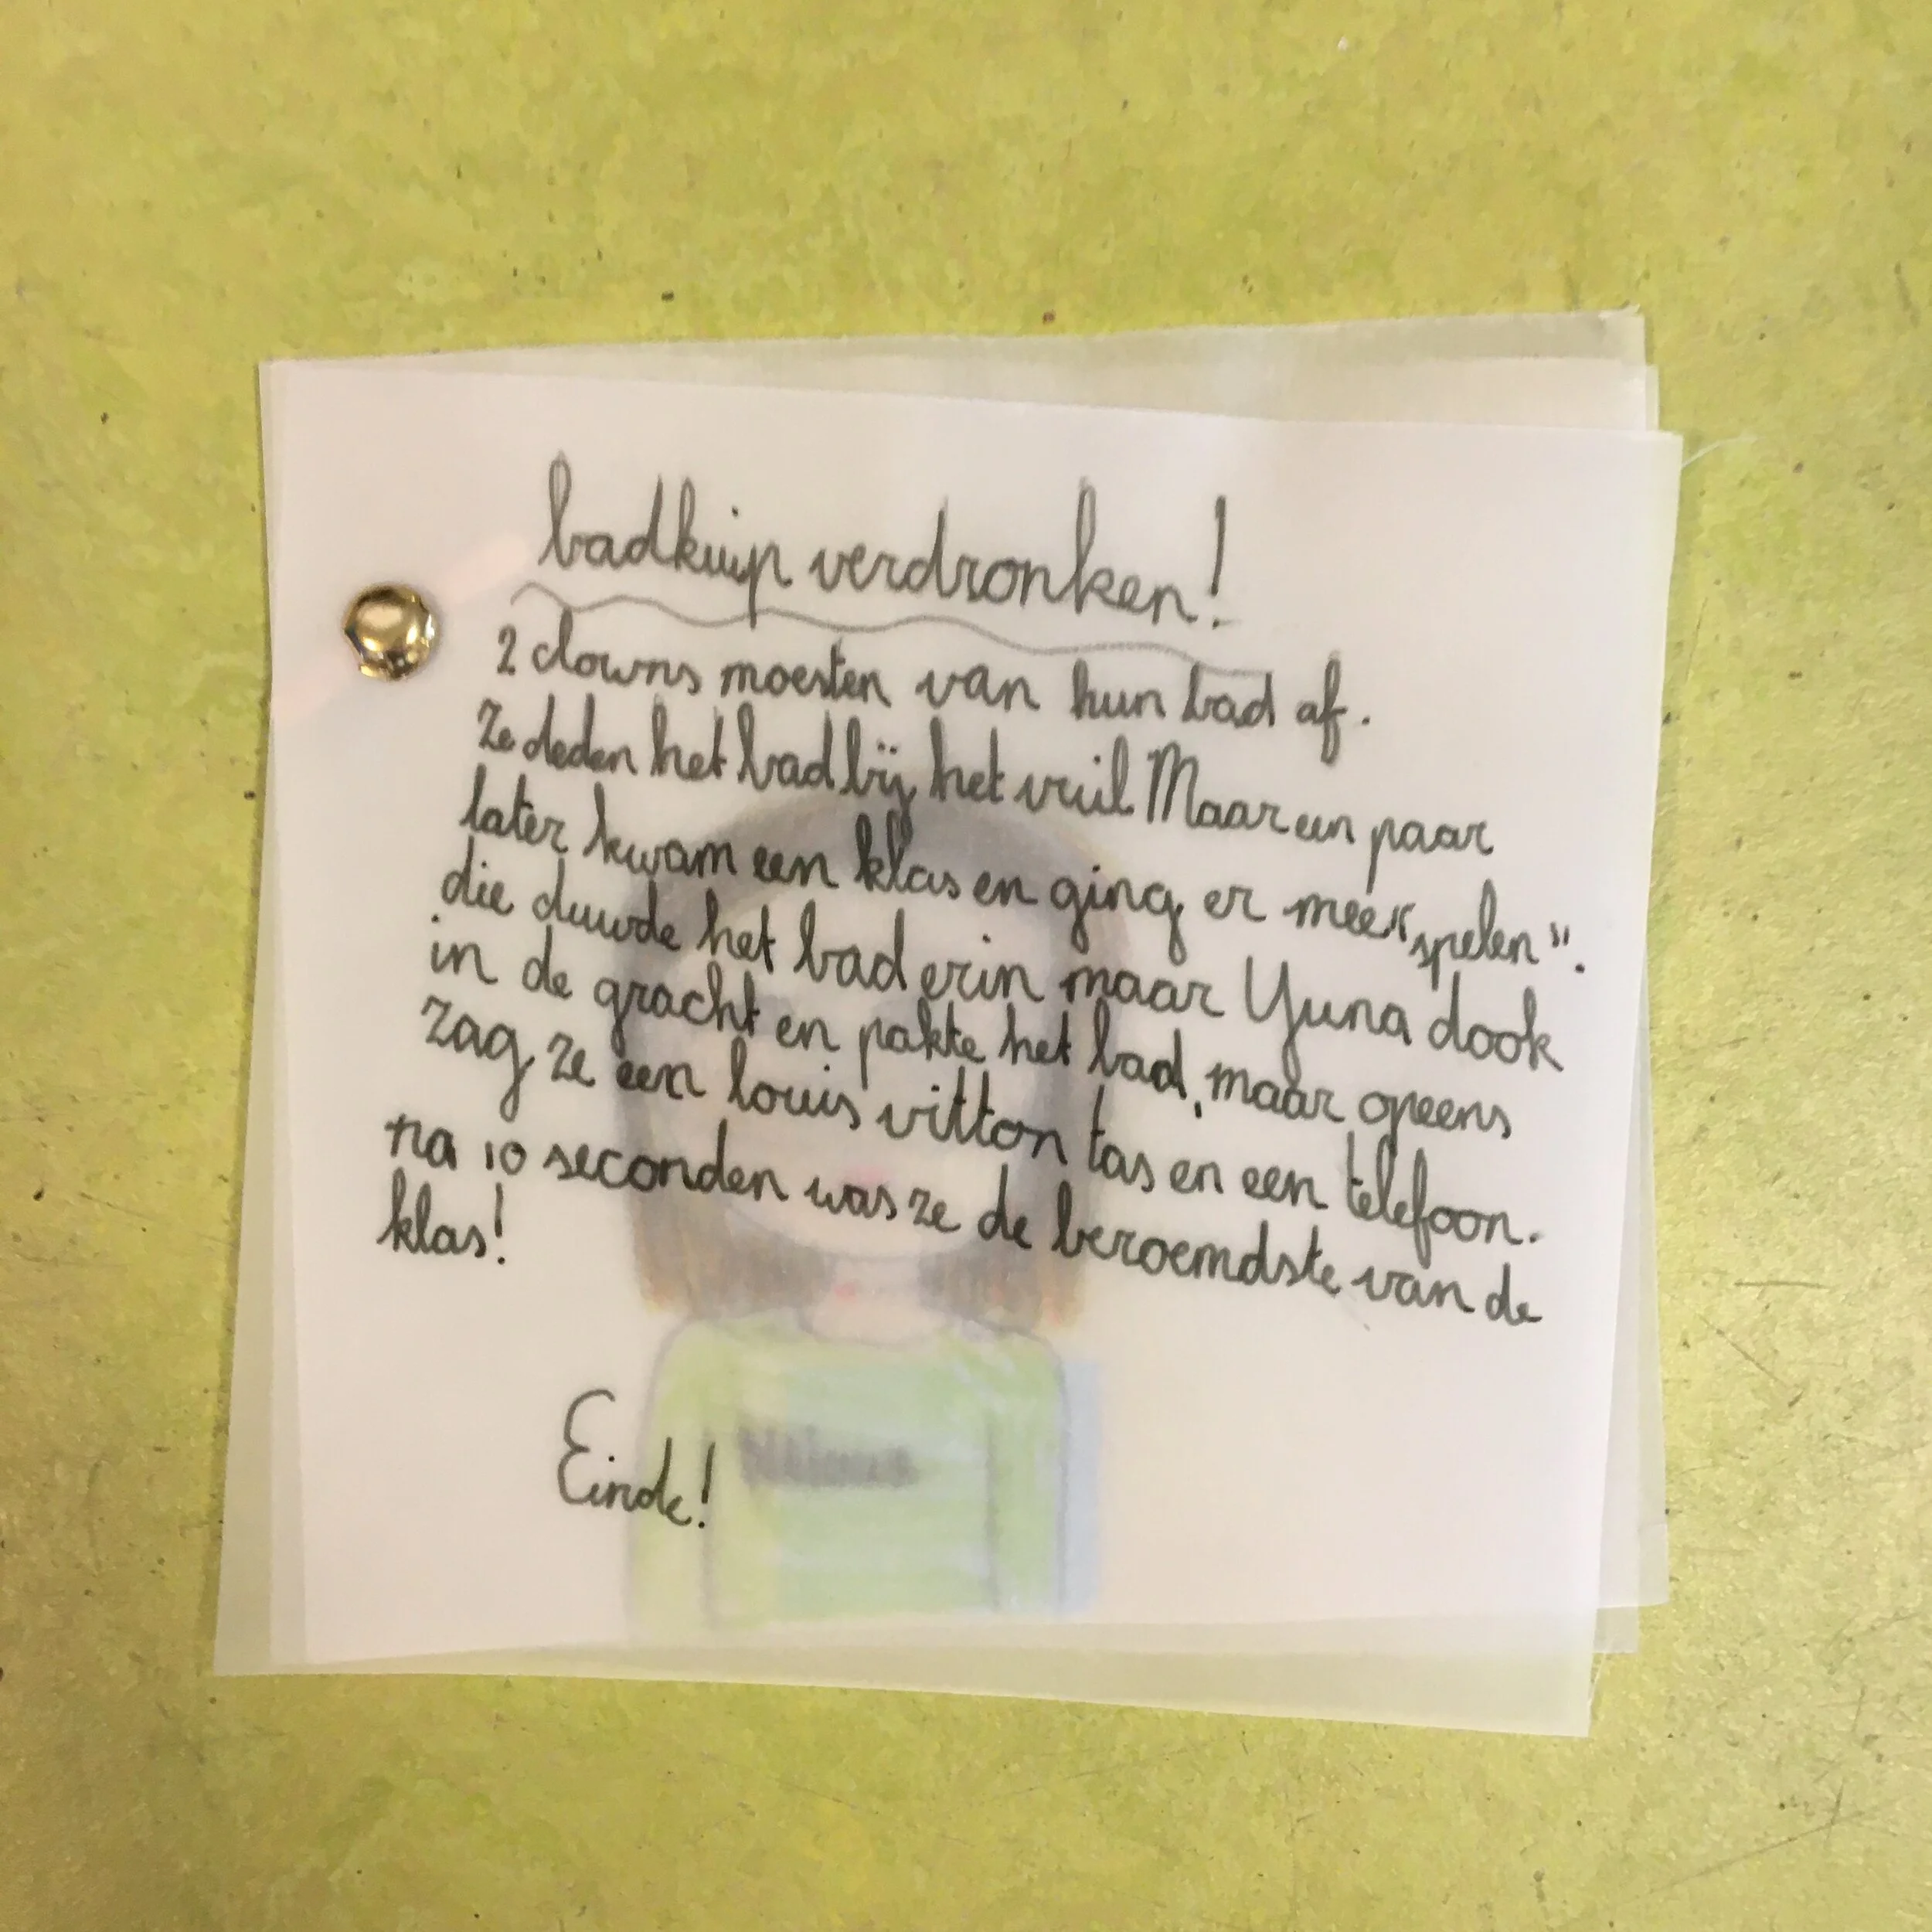 badkuip verdronken!
2 clowns moesten van hun bad af.
Ze deden het bad bij het vuil Maar een paar
later kwam een klas en ging er mee "spelen".
die duwde het bad erin maar Yuna dook
in de gracht en pakte het bad, maar opeens
zag ze een louis vitton tas en een telefoon.
na 10 seconden was ze de beroemdste van de
klas!
Einde!